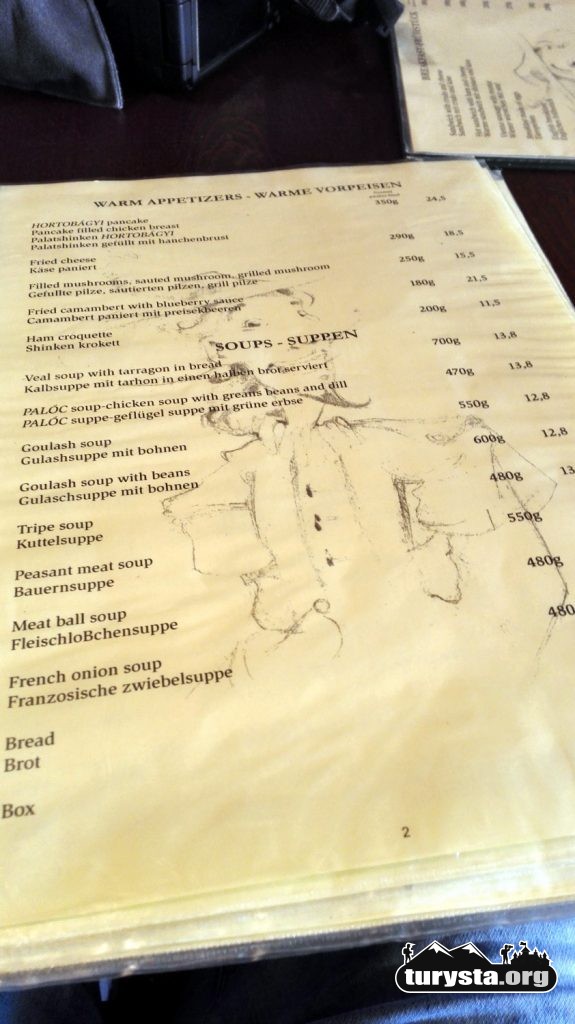 WARM APPETIZERS - WARME VORPEISEN
HORTOBÁGYI pancake 350g 24,5
Pancake filled chicken breast
Palatshinken HORTOBÁGYI
Palatshinken gefüllt mit hanchenbrust
Fried cheese 290g 18,5
Käse paniert
Filled mushrooms, sauted mushroom, grilled mushroom 250g 15,5
Gefullte pilze, sautierten pilzen, grill pilze
Fried camambert with blueberry sauce 180g 21,5
Camambert paniert mit preisekbeeren
Ham croquette 200g 11,5
Shinken krokett
SOUPS - SUPPEN
Veal soup with tarragon in bread 700g 13,8
Kalbsuppe mit tarhon in einen halben brot serviert
PALÓC soup-chicken soup with greans beans and dill 470g 13,8
PALÓC suppe-geflügel suppe mit grüne erbse
Goulash soup 550g 12,8
Gulashsuppe mit bohnen
Goulash soup with beans 600g 12,8
Gulaschsuppe mit bohnen
Tripe soup 480g 13
Kuttelsuppe
Peasant meat soup 550g
Bauernsuppe
Meat ball soup 480g
FleischloBchensuppe
French onion soup 480
Franzosische zwiebelsuppe
Bread
Brot
Box
2
BREAKFAST-FRÜHSTÜCK
turysta.org